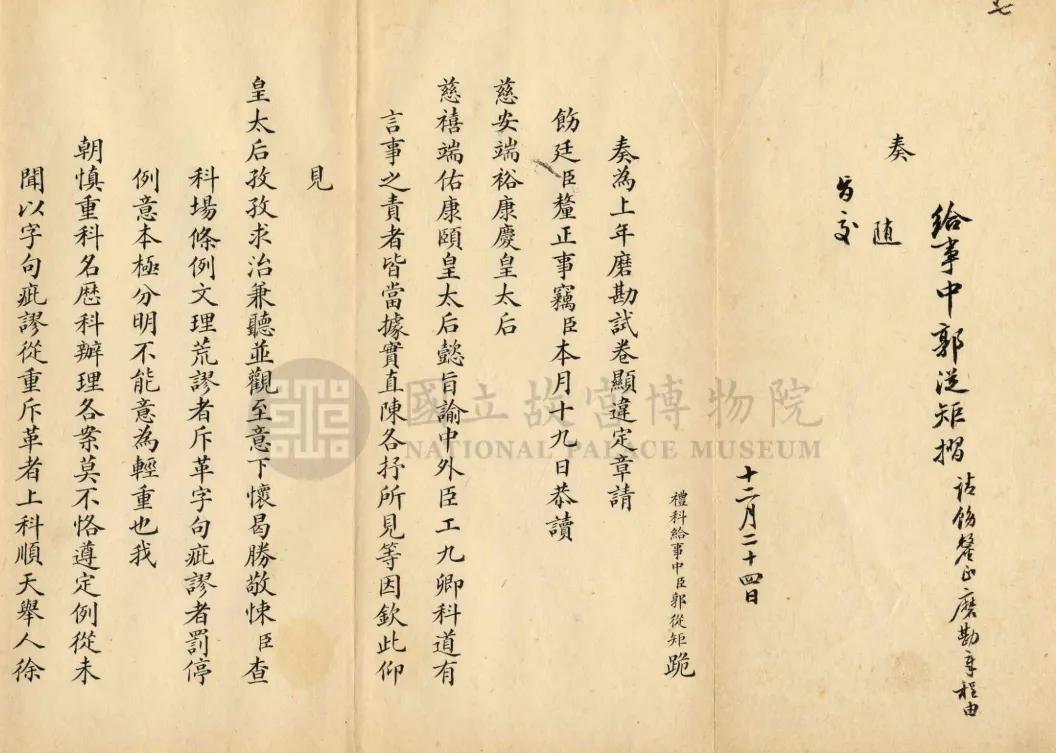 七
給事中郭從矩摺 請飭釐正磨勘章程由
奏
隨
旨交
十二月二十四日
禮科給事中臣郭從矩跪
奏為上年磨勘試卷顯違定章請
飭廷臣釐正事竊臣本月十九日恭讀
慈安端裕康慶皇太后
慈禧端佑康頤皇太后懿旨諭中外臣工九卿科道有
言事之責者皆當據實直陳各抒所見等因欽此仰
見
皇太后孜孜求治兼聽並觀至意下懷曷勝敬悚臣查
科場條例文理荒謬者斥革字句疵謬者罰停
例意本極分明不能意為輕重也我
朝慎重科名歷科辦理各案莫不恪遵定例從未
聞以字句疵謬從重斥革者上科順天舉人徐
國立故宮博物院
NATIONAL PALACE MUSEUM